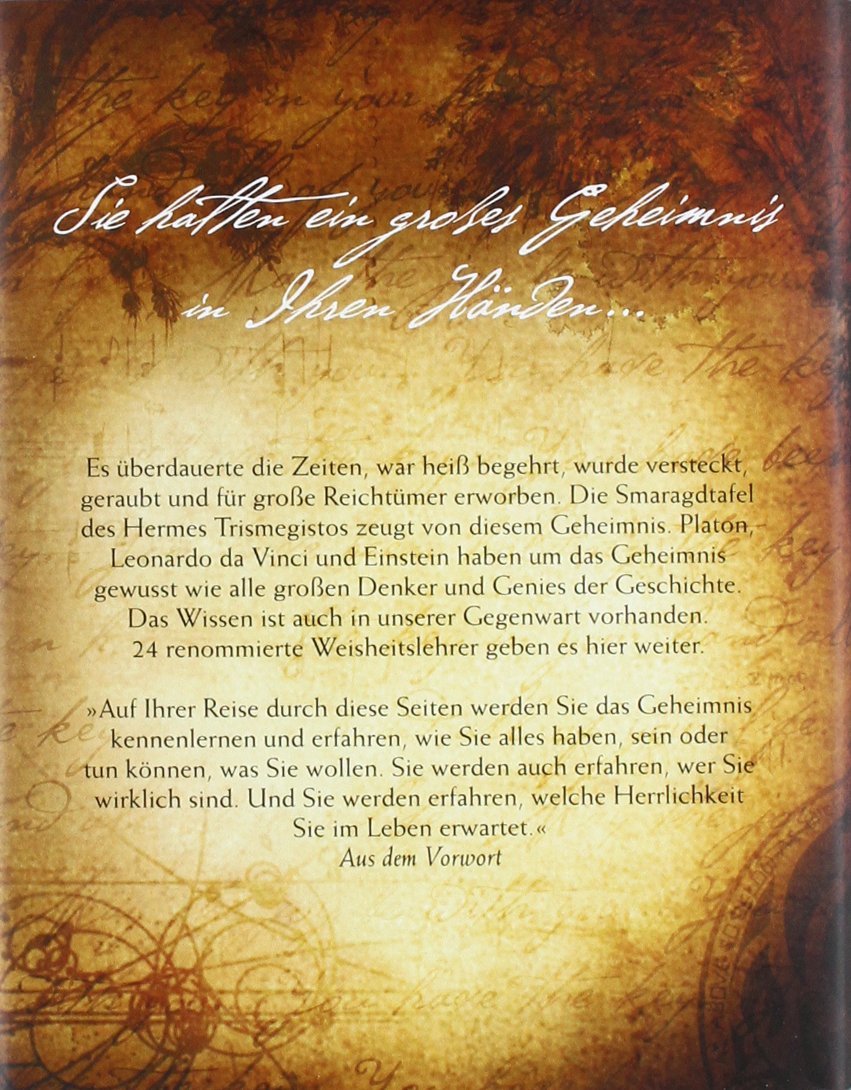 Sie halten ein großes Geheimnis
in Ihren Händen...
Es überdauerte die Zeiten, war heiß begehrt, wurde versteckt,
geraubt und für große Reichtümer erworben. Die Smaragdtafel
des Hermes Trismegistos zeugt von diesem Geheimnis. Platon,
Leonardo da Vinci und Einstein haben um das Geheimnis
gewusst wie alle großen Denker und Genies der Geschichte.
Das Wissen ist auch in unserer Gegenwart vorhanden.
24 renommierte Weisheitslehrer geben es hier weiter.
»Auf Ihrer Reise durch diese Seiten werden Sie das Geheimnis
kennenlernen und erfahren, wie Sie alles haben, sein oder
tun können, was Sie wollen. Sie werden auch erfahren, wer Sie
wirklich sind. Und Sie werden erfahren, welche Herrlichkeit
Sie im Leben erwartet.«
Aus dem Vorwort